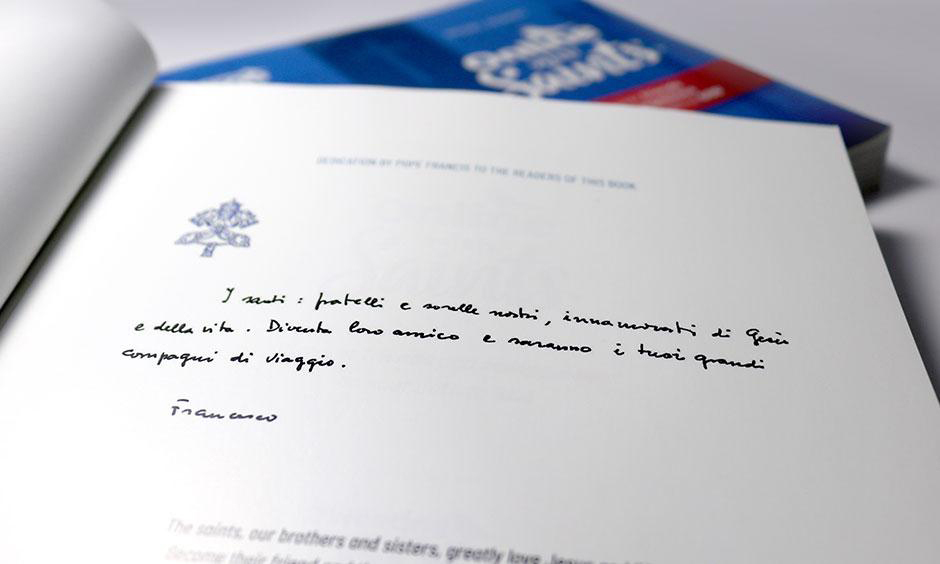 Saints
DEDICATION BY POPE FRANCIS TO THE READERS OF THIS BOOK
I santi : fratelli e sorelle nostri, innamorati di Gesù
e della vita. Diventa loro amico e saranno i tuoi grandi
compagni di viaggio.
Francesco
The saints, our brothers and sisters, greatly love Jesus
Become their friend and